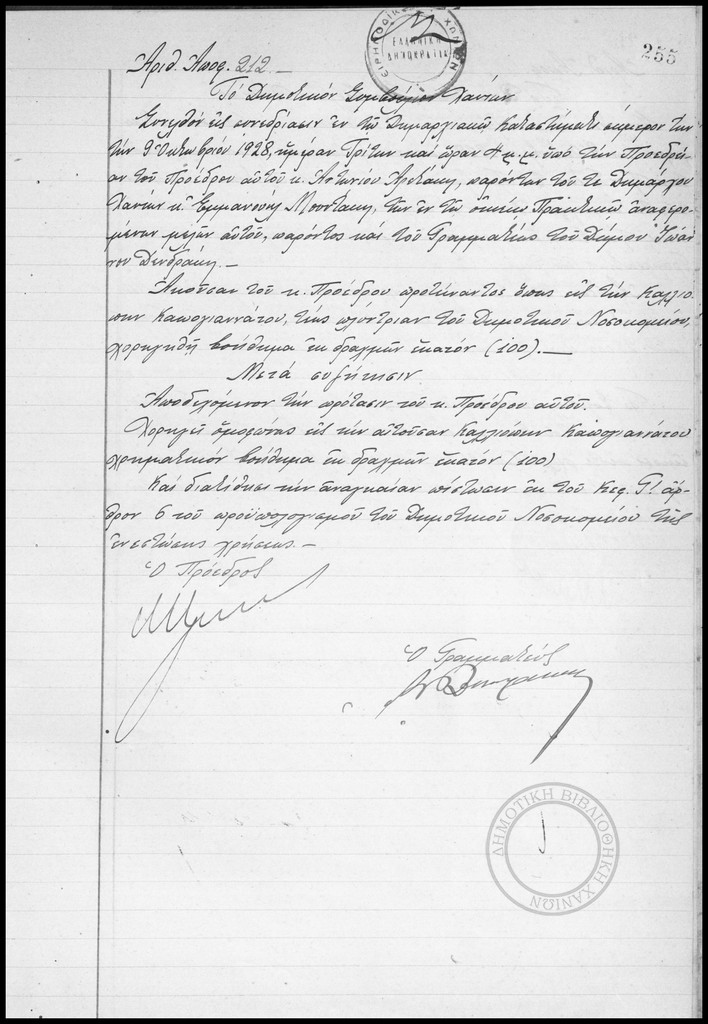 ΕΙΡΗΝΟΔΙΚΕΙΟΝ ΧΑΝΙΩΝ
ΕΛΛΗΝΙΚΗ
ΔΗΜΟΚΡΑΤΙΑ
255
Αριθ. Αποφ. 212.—
Τό Δημοτικόν Συμβούλιον Χανίων
Συνελθόν εἰς συνεδρίασιν ἐν τῷ Δημαρχιακῷ Καταστήματι σήμερον τήν
τήν 9 Ὀκτωβρίου 1928, ἡμέραν Τρίτην καί ὥραν 4 μ.μ. ὑπό τήν Προεδρεί-
αν τοῦ Προέδρου αὐτοῦ κ. Ἀντωνίου, παρόντων τοῦ τε Δημάρχου
Χανίων κ. Ἐμμανουήλ Μουντάκη, τῶν ἐν τῷ οἰκείῳ Πρακτικῷ ἀναφερο-
μένων μελῶν αὐτοῦ, παρόντος καί τοῦ Γραμματέως τοῦ Δήμου Ἰωάν-
νου Δενδράκη.—
Ἀκοῦσαν τοῦ κ. Προέδρου προτείναντος ὅπως εἰς τήν Καλλιό-
πην Καπογιαννάτου, τέως πλύντριαν τοῦ Δημοτικοῦ Νοσοκομείου,
χορηγηθῇ βοήθημα ἐκ δραχμῶν ἑκατόν (100).—
Μετά συζήτησιν
Ἀποδεχόμενον τήν πρότασιν τοῦ κ. Προέδρου αὐτοῦ.
Χορηγεῖ ὁμοφώνως εἰς τήν αἰτοῦσαν Καλλιόπην Καπογιαννάτου
χρηματικόν βοήθημα ἐκ δραχμῶν ἑκατόν (100)
Καί διατίθησι τήν ἀναγκαίαν πίστωσιν ἐκ τοῦ Κεφ. Γ! ἄρ-
θρον 6 τοῦ προϋπολογισμοῦ τοῦ Δημοτικοῦ Νοσοκομείου τῆς
ἐνεστώσης χρήσεως.—
Ὁ Πρόεδρος
Ὁ Γραμματεύς
ΔΗΜΟΤΙΚΗ ΒΙΒΛΙΟΘΗΚΗ ΧΑΝΙΩΝ